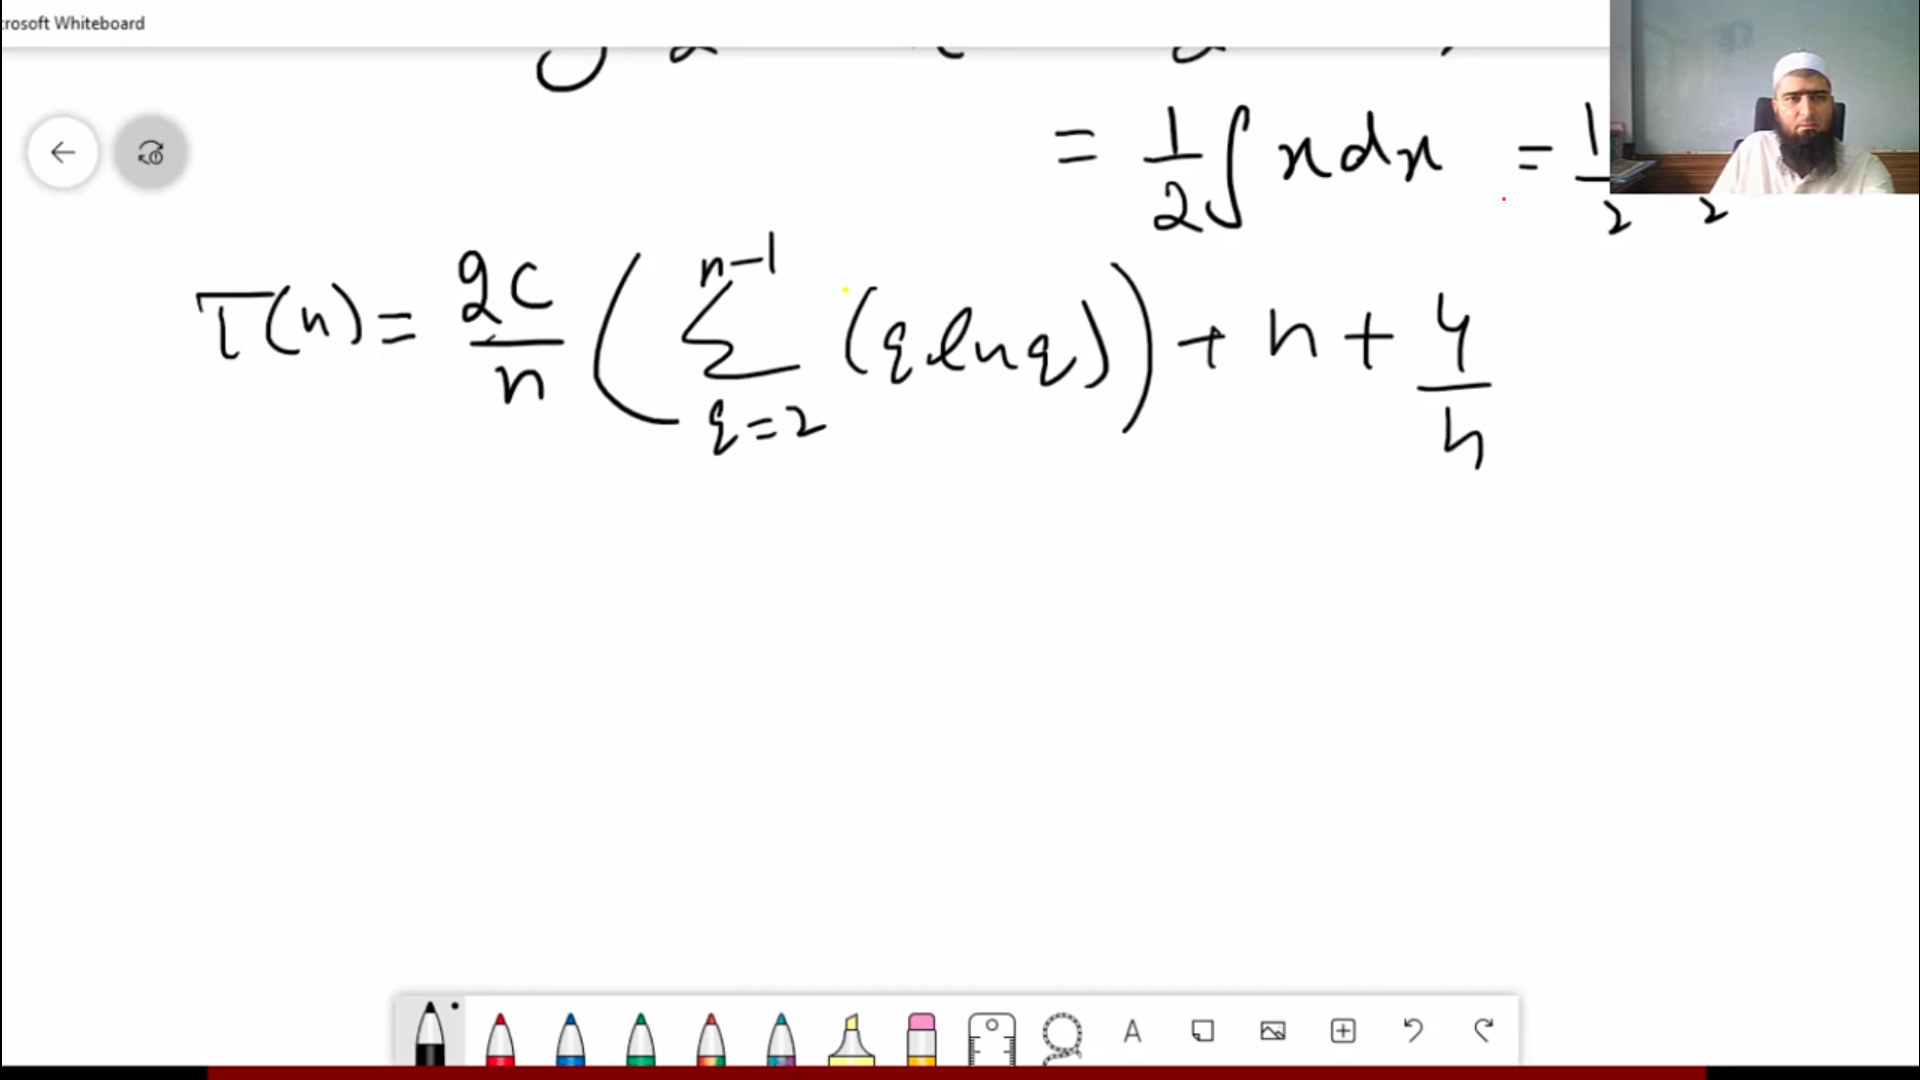 crosoft Whiteboard
= 1/2 ∫ x dx = 1/2 2
T(n) = 2c/n ( ∑_{q=2}^{n-1} (q ln q) ) + n + 4/n
A